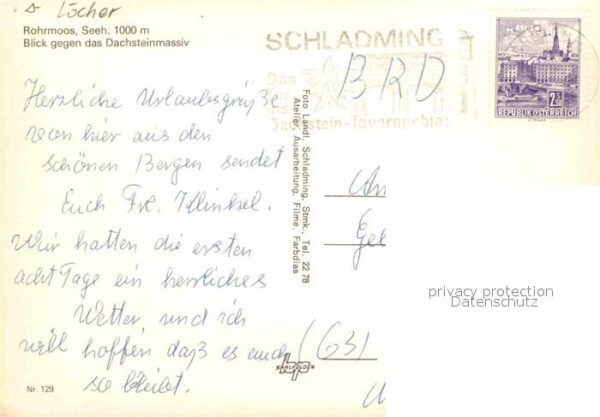 Löcher
Rohrmoos, Seeh. 1000 m
Blick gegen das Dachsteinmassiv
SCHLADMING
Das
Dachstein-Tauerngebiet
BRD
REPUBLIK ÖSTERREICH
Herzliche Urlaubsgrüße
von hier aus den
schönen Bergen sendet
Euch Frl. Klinkel.
Wir hatten die ersten
acht Tage ein herrliches
Wetter, und ich
will hoffen daß es auch
so bleibt.
Foto Landl, Schladming, Stmk., Tel. 22 78
Atelier, Ausarbeitung, Filme, Farbdias
An
Gel
(63)
privacy protection
Datenschutz
hp
SAALFELDEN
Nr. 129